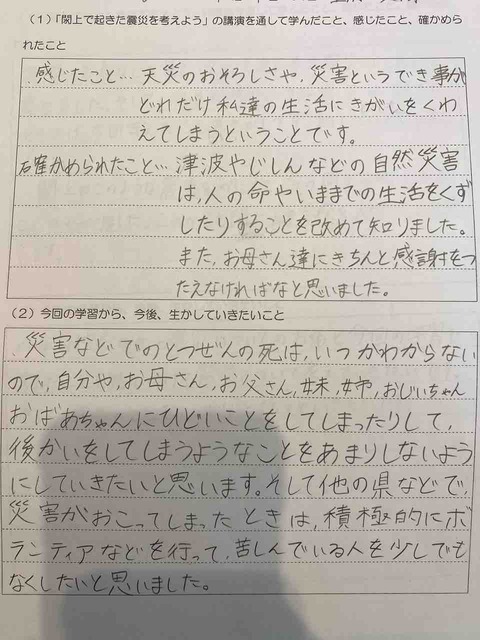 (1)「閖上で起きた震災を考えよう」の講演を通して学んだこと、感じたこと、確かめら
れたこと
感じたこと…天災のおそろしさや、災害というでき事が
どれだけ私達の生活にきがいをくわ
えてしまうということです。
確かめられたこと…津波やじしんなどの自然災害
は、人の命やいままでの生活をくず
したりすることを改めて知りました。
また、お母さん達にきちんと感謝をつ
たえなければなと思いました。
(2)今回の学習から、今後、生かしていきたいこと
災害などでのとつぜんの死は、いつかわからない
ので、自分や、お母さん、お父さん、妹、姉、おじいちゃん
おばあちゃんにひどいことをしてしまったりして、
後かいをしてしまうようなことをあまりしないよう
にしていきたいと思います。そして他の県などで、
災害がおこってしまったときは、積極的にボ
ランティアなどを行って、苦しんでいる人を少しでも
なくしたいと思いました。